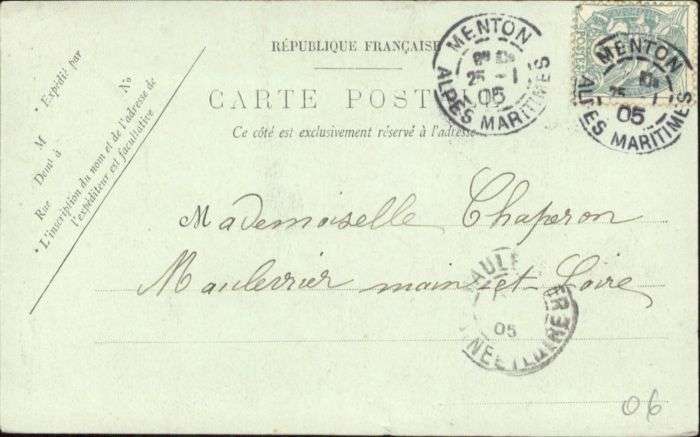 RÉPUBLIQUE FRANÇAISE
CARTE POSTALE
Ce côté est exclusivement réservé à l'adresse
• Expédié par
M N°
Dom.t à
Rue
• L'inscription du nom et de l'adresse de
l'expéditeur est facultative
MENTON
25 -1
05
ALPES MARITIMES
POSTES
MENTON
25 1
05
ALPES MARITIMES
Mademoiselle Chaperon
Maulevrier main-et-Loire
05
06